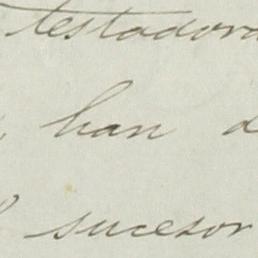 testadora
han d
sucesor